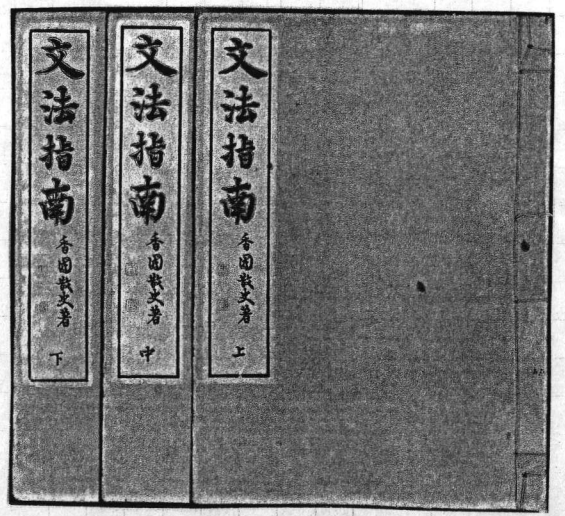 文法指南
香園散史著
上
文法指南
香園散史著
中
文法指南
香園散史著
下